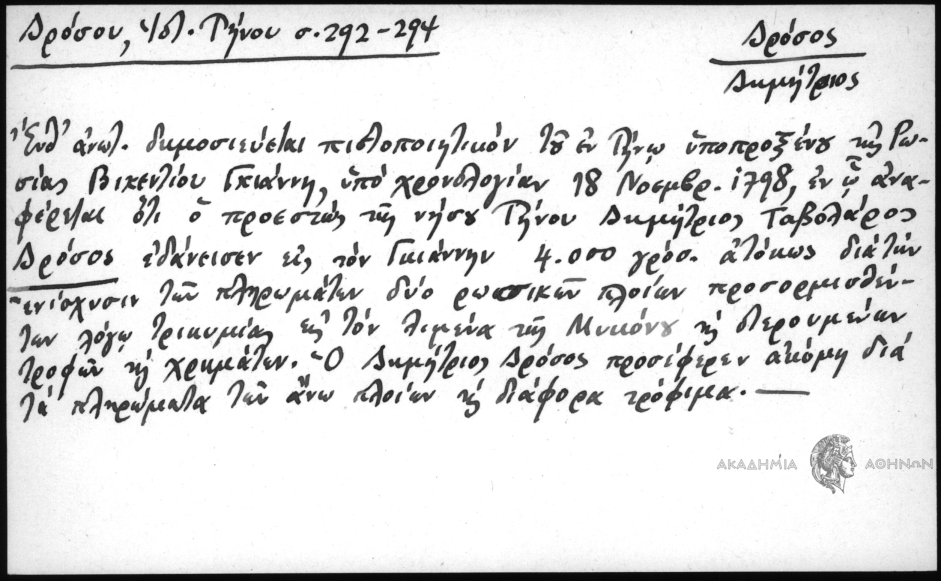 Δρόσου, Ἱστ. Τήνου σ. 292-294
Δρόσος
Δημήτριος
Ἔνθ' ἀνωτ. δημοσιεύεται πιστοποιητικὸν τοῦ ἐν Τήνῳ ὑποπροξένου τῆς Ρω-
σίας Βικεντίου Γκιάννη, ὑπὸ χρονολογίαν 18 Νοεμβρ. 1798, ἐν ᾧ ἀνα-
φέρεται ὅτι ὁ προεστὼς τῆς νήσου Τήνου Δημήτριος Ταβολάρος
Δρόσος ἐδάνεισεν εἰς τὸν Γκιάννην 4.000 γρόσ. ἀτόκως διὰ τὴν
ἐνίσχυσιν τῶν πληρωμάτων δύο ρωσικῶν πλοίων προσορμισθέν-
των λόγῳ τρικυμίας εἰς τὸν λιμένα τῆς Μυκόνου καὶ στερουμένων
τροφῶν καὶ χρημάτων. Ὁ Δημήτριος Δρόσος προσέφερεν ἀκόμη διὰ
τὰ πληρώματα τῶν ἄνω πλοίων καὶ διάφορα τρόφιμα. —
ΑΚΑΔΗΜΙΑ ΑΘΗΝΩΝ